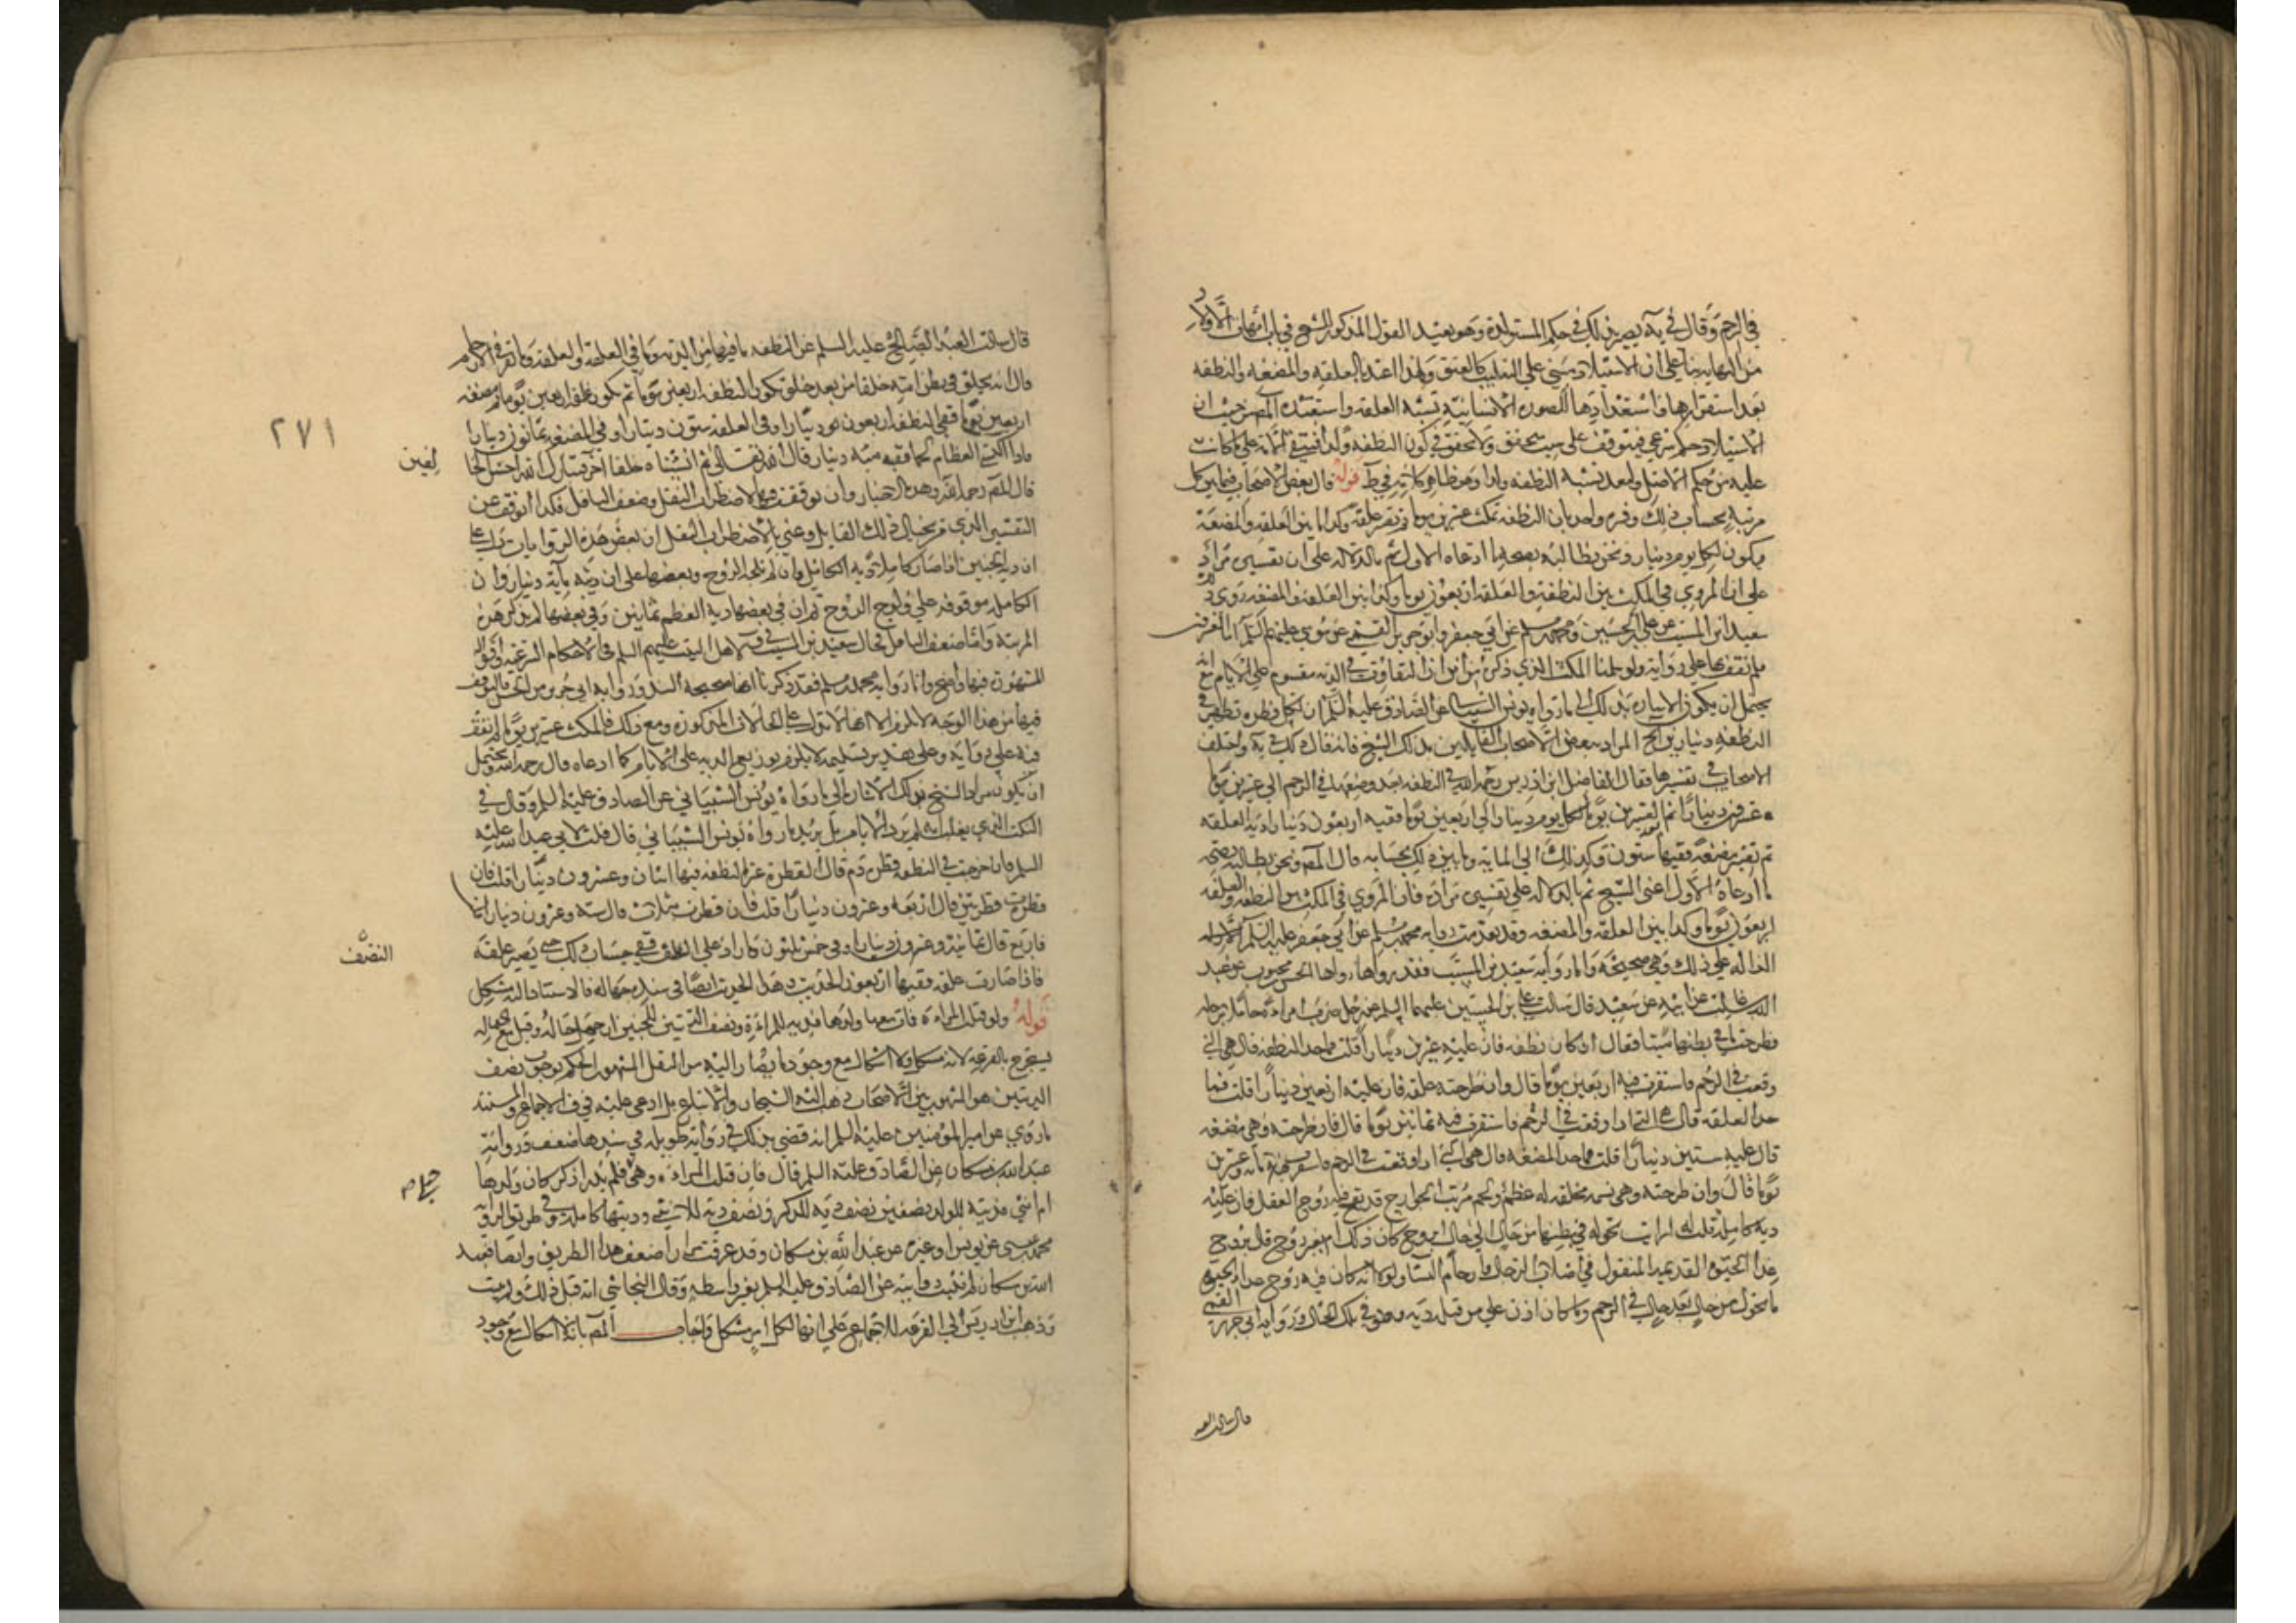 في الرحم وقال في يه يصير بذلك في حكم المستولدة وهو بعيد القول المذكور للشيخ في باب امهات الاولاد
من النهايه بنا على ان الاستيلاد مبني على التغليب كالعتق ولهذا اعتد بالعلقه والمضغه والنطفه
بعد استقرارها واستعدادها للصورة الانسانية تشبه العلقه واستبعده المصـ حيث ان
الاستيلاد حكم شرعي فيتوقف على سبب محقق ولا تحقق في كون النطفه ولدا فتبقى الامة على ما كانت
عليه من حكم الاصل ولبعد تسمية النطفه ولدا وهو ظاهر كلامه في ط قوله قال بعض الاصحاب فيما بين كل
مرتبة بحساب ذلك وفسره واحد بان النطفه تمكث عشرين يوما ثم تصير علقة وكذا ما بين العلقه والمضغة
فيكون لكل يوم دينار ونحن نطالبه بصحة ما ادعاه الاول ثم بالدلالة على ان تفسيره مراد
على ان المروي في المكث بين النطفة والعلقه اربعون يوما وكذا بين العلقة والمضغه روى ذلك
سعيد ابن المسيب عن علي بن الحسين ومحمد بن مسلم عن ابي جعفر وابو جرير القمي عن موسى عليهم السلم اما العشرون
فلم نقف بها على رواية ولو سلمنا المكث الذي ذكره من اين ان التفاوت في الدية مقسوم على الايام غايته
يحتمل ان يكون الاشارة بذلك الى ما رواه يونس الشيباني عن الصادق عليه السلم ان لكل قطره تظهر في
النطفة دينارين الخ المراد ببعض الاصحاب القايلين بذلك الشيخ فانه قال ذلك في يه واختلف
الاصحاب في تفسيرها فقال الفاضل ابن ادريس رحمه الله النطفه بعد وضعها في الرحم الى عشرين يوما
عشرون دينارا ثم بعد العشرين يوما لكل يوم دينار الى اربعين يوما ففيه اربعون دينارا دية العلقه
ثم تصير مضغة ففيها ستون وكذلك الى المايه وما بين ذلك بحسابه قال المصـ ونحن نطالبه بصحة
ما ادعاه الاول اعني الشيخ ثم بالدلالة على تفسيره مراده فان المروي في المكث بين النطفه والعلقه
اربعون يوما وكذا بين العلقه والمضغه وقد تقدمت رواية محمد بن مسلم عن ابي جعفر عليه السلم
الدالة على ذلك وهي صحيحة واما رواية سعيد بن المسيب فقد رواها الحسن بن محبوب عن عبد
الله بن غالب عن ابيه عن سعيد قال سالت علي بن الحسين عليهما السلم عن رجل ضرب امراة حاملا برجله
فطرحت ما في بطنها ميتا فقال ان كان نطفه فان عليه عشرين دينارا قلت فما حد النطفه قال هي التي
وقعت في الرحم فاستقرت فيه اربعين يوما قال وان طرحته علقه فان عليه اربعين دينارا قلت فما
حد العلقه قال هي التي اذا وقعت في الرحم فاستقرت فيه ثمانين يوما قال فان طرحته وهي مضغه
قال عليه ستين دينارا قلت فما حد المضغه قال هي التي اذا وقعت في الرحم فاستقرت فيه مائة وعشرين
يوما قال وان طرحته وهي نسمه مخلقه له عظم ولحم مرتب الجوارح قد نفخ فيه روح العقل فان عليه
دية كاملة قلت له ارايت تحوله في بطنها من حال الى حال ابروح كان ذلك ام بغير روح قال بروح
غذا الحيوة القديم المنقول في اصلاب الرجال وارحام النسا ولولا انه كان فيه روح غذا الحيوة
ما تحول من حال بعد حال في الرحم وما كان اذن على من قتله دية وهو في تلك الحال ورواية ابي جرير القمي
قال سالت العبد
قال سالت العبد الصالح عليه السلم عن النطفه ما فيها من الدية وما في العلقه وما في المضغه المخلقه وما تقر في الارحام
قال انه يخلق في بطن امه خلقا من بعد خلق تكون النطفه اربعين يوما ثم تكون علقه اربعين يوما ثم مضغه
اربعين يوما ففي النطفه اربعون دينارا وفي العلقه ستون دينارا وفي المضغه ثمانون دينارا
فاذا اكتسى العظام لحما ففيه مية دينار قال الله تعالى ثم انشاناه خلقا اخر فتبارك الله احسن الخا
لقين
٢٧١
قال المصـ رحمه الله وهذه الاخبار وان توقفت فيها لاضطراب النقل وضعف الناقل فكذا اتوقف عن
التفسير الذي مر بخيال ذلك القايل وعنى بالاضطراب النقل ان بعض هذه الروايات تدل على
ان دية الجنين اذا صار كاملا دية الكامل وان لم تلجه الروح وبعضها على ان ديته ماية دينار وان
الكاملة موقوفه على ولوج الروح ثم ان في بعضها دية العظم ثمانين وفي بعضها لم يذكر هذه
المرتبة واما ضعف الناقل فحال سعيد بن المسيب في اهل البيت عليهم السلم في الاحكام الشرعيه واقواله
المشهورة فيها واضح واما رواية محمد بن مسلم فقد ذكرنا انها صحيحة السند ورواية ابي جرير من الحسن فالتوقف
فيها من هذا الوجه لا يلزم الا انها لا تدل على الحالات المذكورة ومع ذلك فالمكث عشرين يوما لم نقف
فيه على رواية وعلى تقدير تسليمه لا يلزم توزيع الدية على الايام كما ادعاه قال رحمه الله ويحتمل
ان يكون مراد الشيخ بذلك الاشارة الى ما رواه يونس الشيباني عن الصادق عليه السلم وقال في
النكت الذي يغلب انه لم يرد الايام بل يريد ما رواه يونس الشيباني قال قلت لابي عبد الله عليه
السلم فان خرجت في النطفه قطرة دم قال القطرة عشر النطفه فيها اثنان وعشرون دينارا قلت فان
قطرت قطرتين قال اربعه وعشرون دينارا قلت فان قطرت بثلاث قال ستة وعشرون دينارا قلت
فاربع قال ثمانية وعشرون دينارا وفي خمس ثلثون وما زاد على النصف فبحساب ذلك حتى يصير علقة
النصف
فاذا صارت علقه ففيها اربعون الحديث وهذا الحديث ايضا في سنده جهاله فالاستناد اليه مشكل
قوله ولو قتل المراءة فمات معها ولدها فديه للمراءة ونصف الديتين للجنين ان جهل حاله وقيل مع الجهاله
يستخرج بالقرعه لانه مشكل ولا اشكال مع وجود ما يصار اليه من النقل المشهور الحكم بوجوب نصف
الديتين هو المشهور بين الاصحاب ذهب اليه الشيخان والاتباع بل ادعى عليه في ف الاجماع والمستند
ما روي عن امير المؤمنين عليه السلم انه قضى بذلك في رواية طويله في سندها ضعف ورواية
عبد الله بن مسكان عن الصادق عليه السلم قال فان قتلت المراءة وهي حبلى فلم يدر اذكر كان ولدها
حبلى صح
ام انثى فدية الولد نصفين نصف دية الذكر ونصف دية الانثى وديتها كاملة وفي طريق الرواية
محمد بن عيسى عن يونس او غيره عن عبد الله بن مسكان وقد عرفت مرارا ضعف هذا الطريق وايضا فعبد
الله بن مسكان لم تثبت روايته عن الصادق عليه السلم بغير واسطه وقال النجاشي انه قيل ذلك وليس بثبت
وذهب ابن ادريس الى القرعه للاجماع على انها لكل امر مشكل واجاب المصـ بانه لا اشكال مع وجود